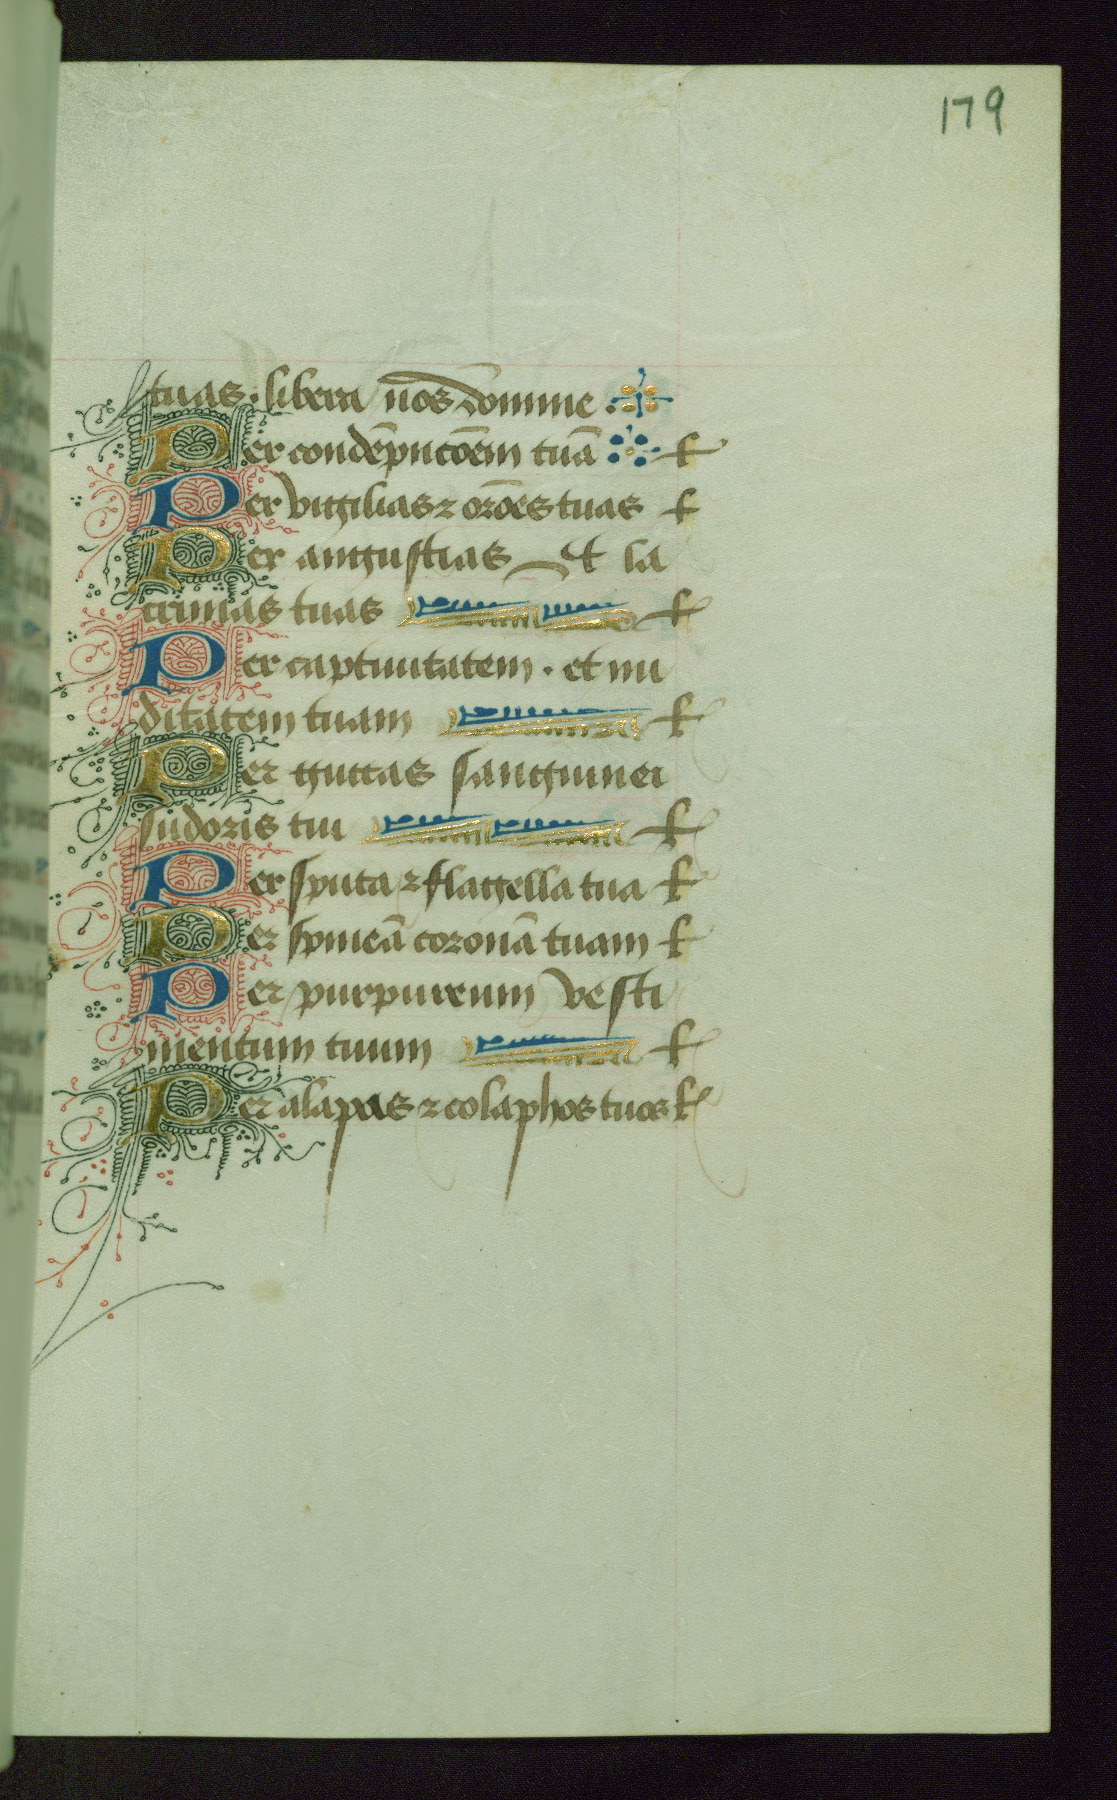 179
tuas · libera nos domine ·
Per condēpnc̄oēm tuā ł
Per vigilias ⁊ orōes tuas ł
Per angustias et la
crimas tuas ł
Per captiuitatem · et nu
ditatem tuam ł
Per guttas sanguinei
sudoris tui ł
Per sputa ⁊ flagella tua ł
Per spineā coronā tuam ł
Per purpureum vesti
mentum tuum ł
Per alapas ⁊ colaphos tuos ł